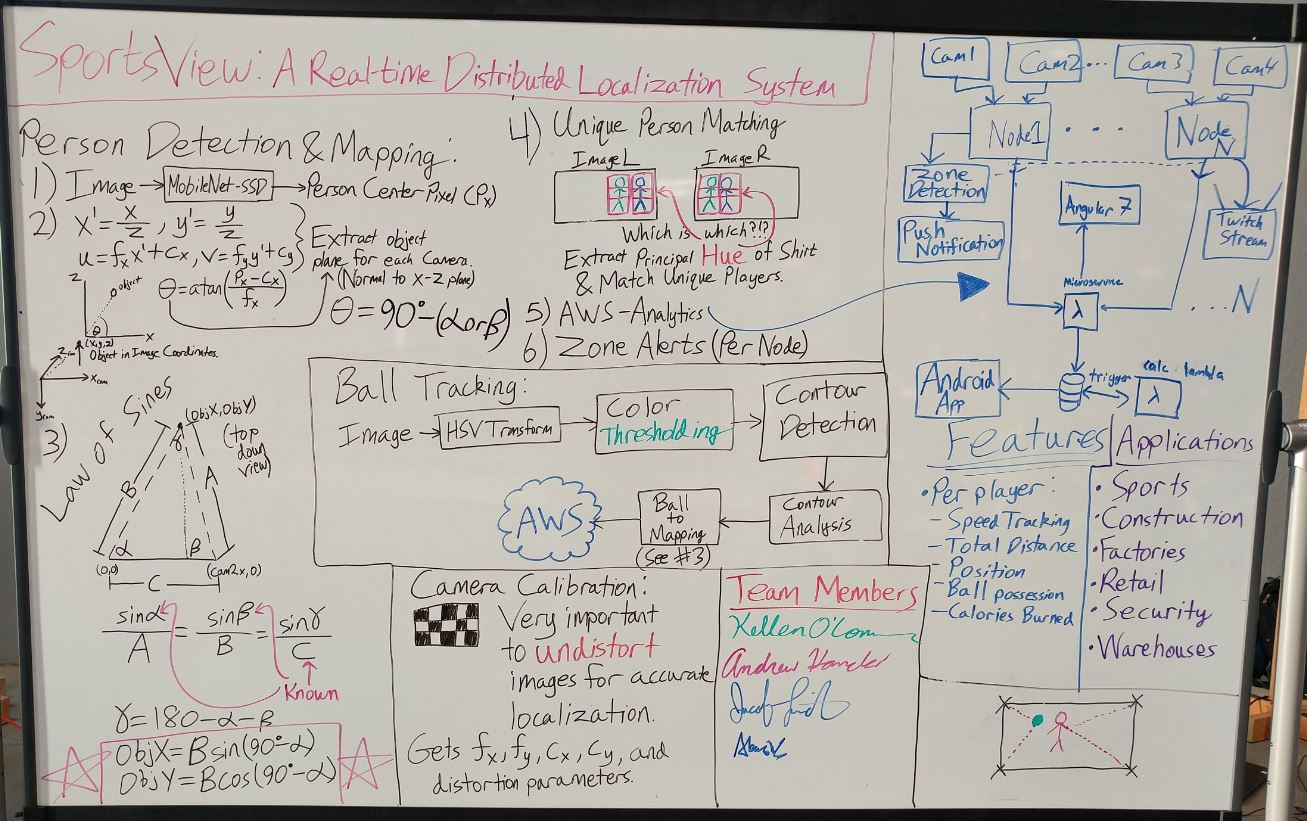 SportsView: A Real-time Distributed Localization System
Person Detection & Mapping:
1) Image → MobileNet-SSD → Person Center Pixel (Px)
2) x' = x/z , y' = y/z
u = fxx' + cx, v = fyy' + cy
Extract object
plane for each Camera.
(Normal to X-Z plane)
θ = atan((Px - Cx)/fx)
θ = 90° - (α or β)
z
object
θ
x
(x,y,z)
Object in Image Coordinates.
Zcam
Xcam
ycam
3) Law of Sines
(ObjX, ObjY)
(top
down
view)
γ
B
A
α
β
(0,0)
(Cam2x, 0)
C
sinα/A = sinβ/B = sinγ/C
Known
γ = 180 - α - β
ObjX = B sin(90° - α)
ObjY = B cos(90° - α)
4) Unique Person Matching
Image L
Image R
Which is which?!?
Extract Principal Hue of Shirt
& Match Unique Players.
5) AWS-Analytics
6) Zone Alerts (Per Node)
Ball Tracking:
Image → HSV Transform
Color
Thresholding
Contour
Detection
Contour
Analysis
Ball
to
Mapping
(See #3)
AWS
Camera Calibration:
Very important
to undistort
images for accurate
localization.
Gets fx, fy, Cx, Cy, and
distortion parameters.
Team Members
Kellen
Andrew
Jacob
Cam1
Cam2
...
Cam3
Cam4
Node1
. . . .
Node N
Zone
Detection
Push
Notification
Angular 7
Twitch
Stream
Microservice
λ
. . . N
Android
App
trigger
calc. lambda
λ
Features
• Per player:
- Speed Tracking
- Total Distance
- Position
- Ball possession
- Calories Burned
Applications
• Sports
• Construction
• Factories
• Retail
• Security
• Warehouses